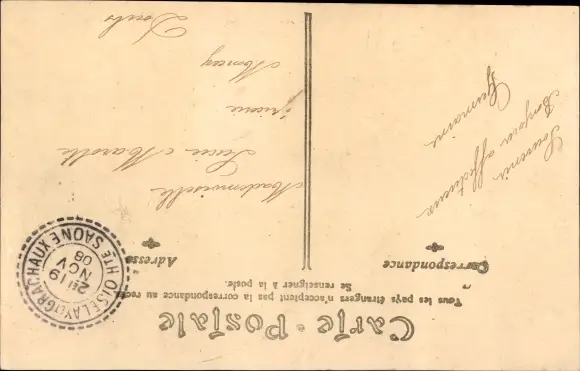 Carte Postale
Tous les pays étrangers n'acceptent pas la correspondance au recto
Se renseigner à la poste.
Correspondance
Adresse
Souvenir
affectueux
Bonjour
Germaine
Mademoiselle
Lucie Marotte
épicerie
Moncey
Doubs
OISELAY & GRACHAUX HTE SAONE
2E 19
NOV
08